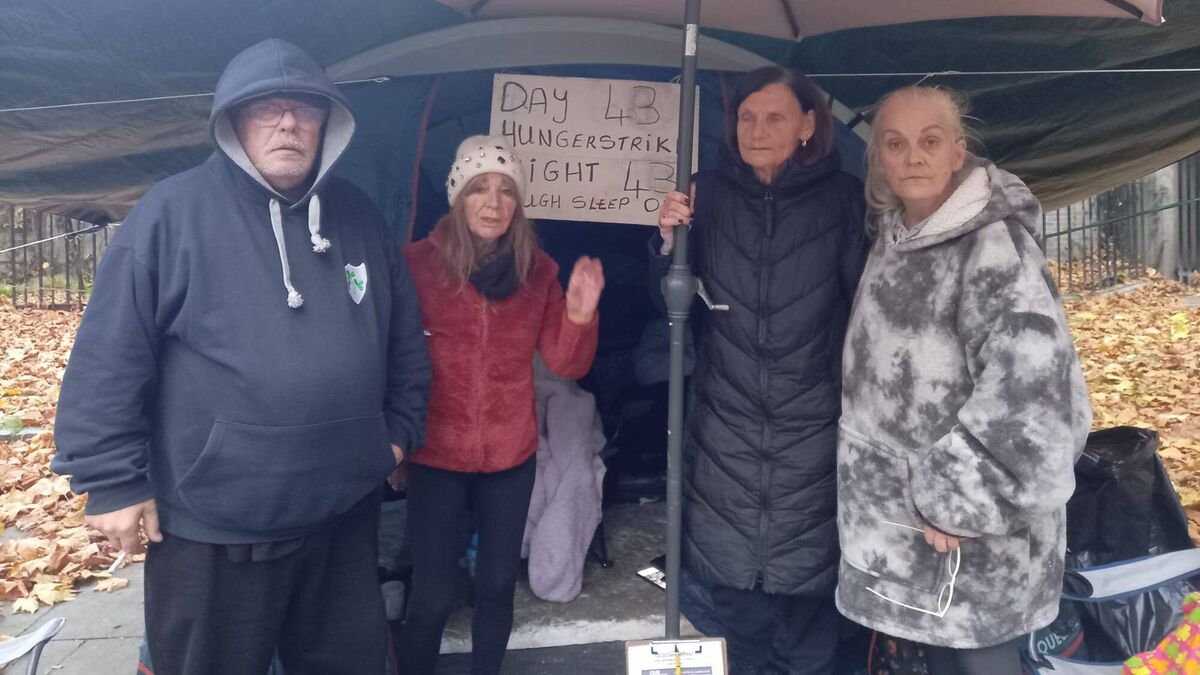 DAY 43
HUNGERSTRIK
IGHT 43
UGH SLEEP O
QUE